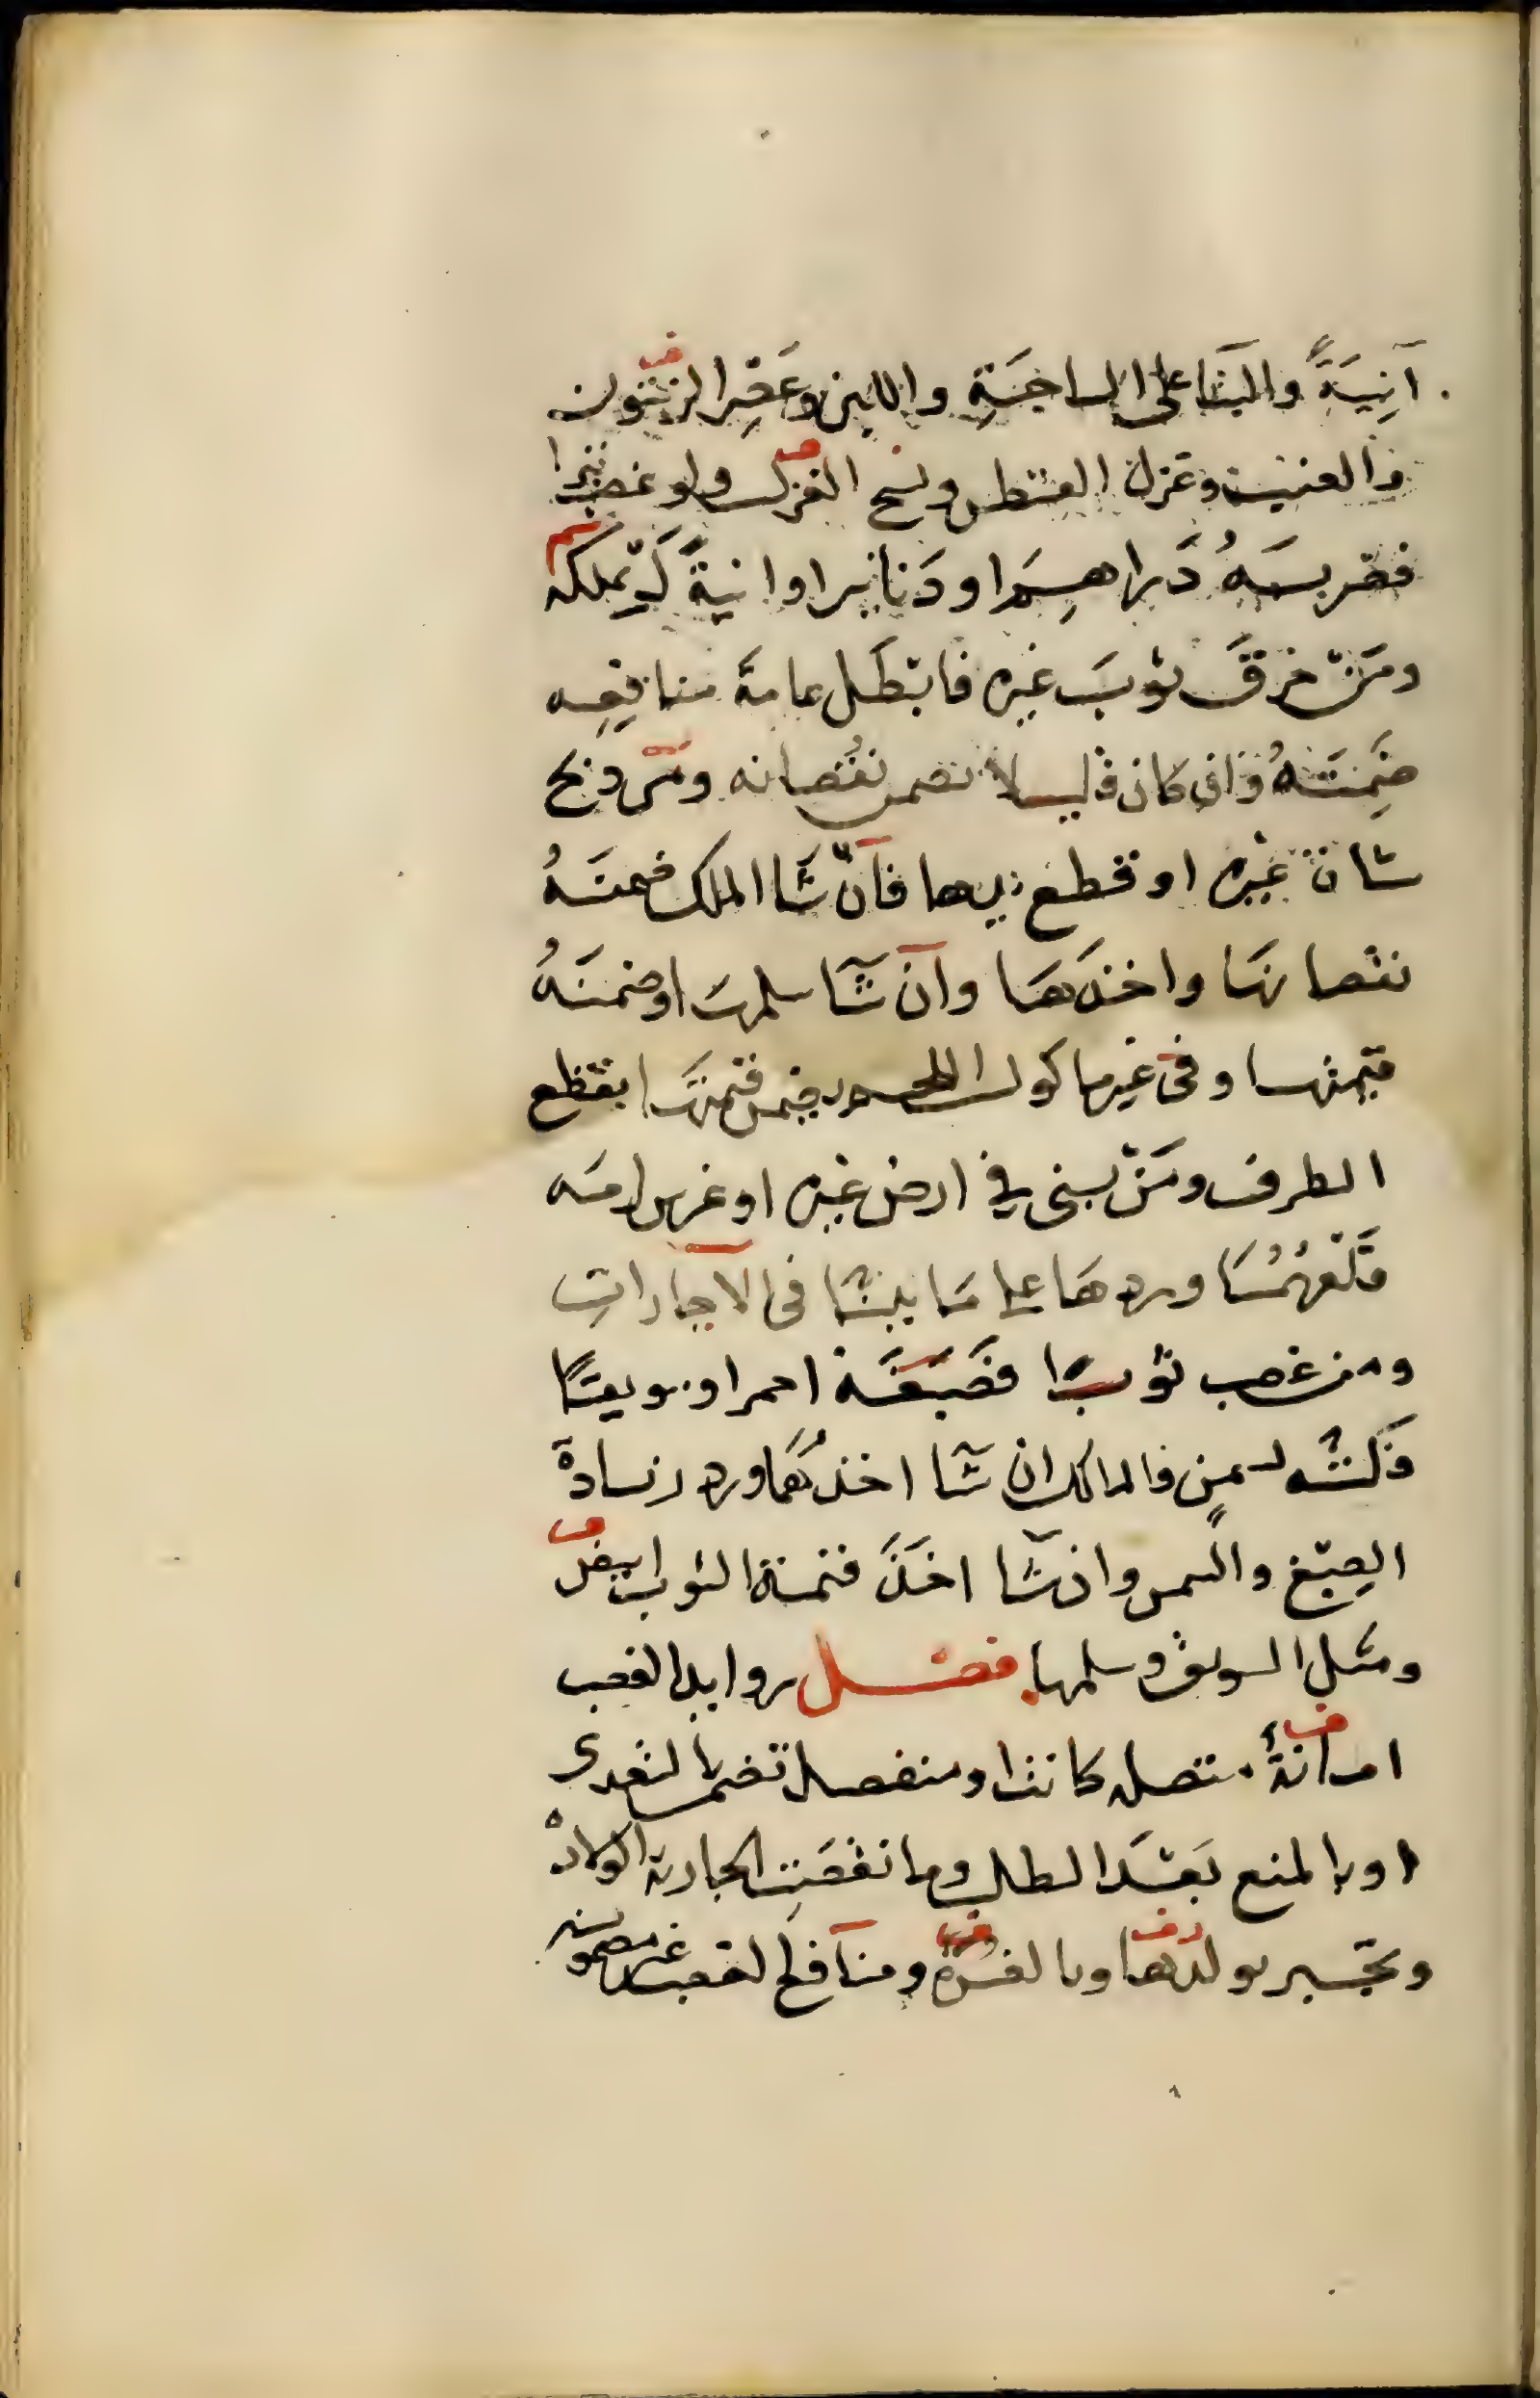 آنِيَةً والبنا على الساجَةِ واللبن وعَصْر الزيتون
والعنب وغزل القطن ونسج الغزل ولو غصب تبرا
فضربه دَراهِم او دَنانير او انيةً لم يملكه
ومَنْ خرقَ ثوبَ غيره فابطَل عامة منافِعِه
ضَمِنَهُ وان كان قليلا ضمن نقصانه ومن ذبح
شاة غيره او قطع يدها فان شَا المالك ضمنَهُ
نقصانها واخذَها وان شا سلمها وضمنَه
قيمتها وفى غير ماكول اللحم يضمن قيمتها بقطع
الطرف ومَنْ بنى فى ارض غيره او غرس لزمه
قَلْعُهُما وردها على مَا بينا فى الاجارات
ومن غصب ثوبا فصَبَغَه احمر او سويقًا
فَلَتَّه بسمنٍ فالمالك ان شا اخذهُما ورد زيادة
الصِبْغ والسمن وان شا اخَذَ قيمة الثوب ابيض
ومثل السويق وسلمها فصل زوايد الغصب
امانةٌ متصلة كانت او منفصلة تضمن بالتعدى
او بالمنع بَعْدَ الطلب وما نقصَتِ الجارية بالولادة
ويُجبر بولدها وبالغرة ومنافع الغصب غير مضمونه